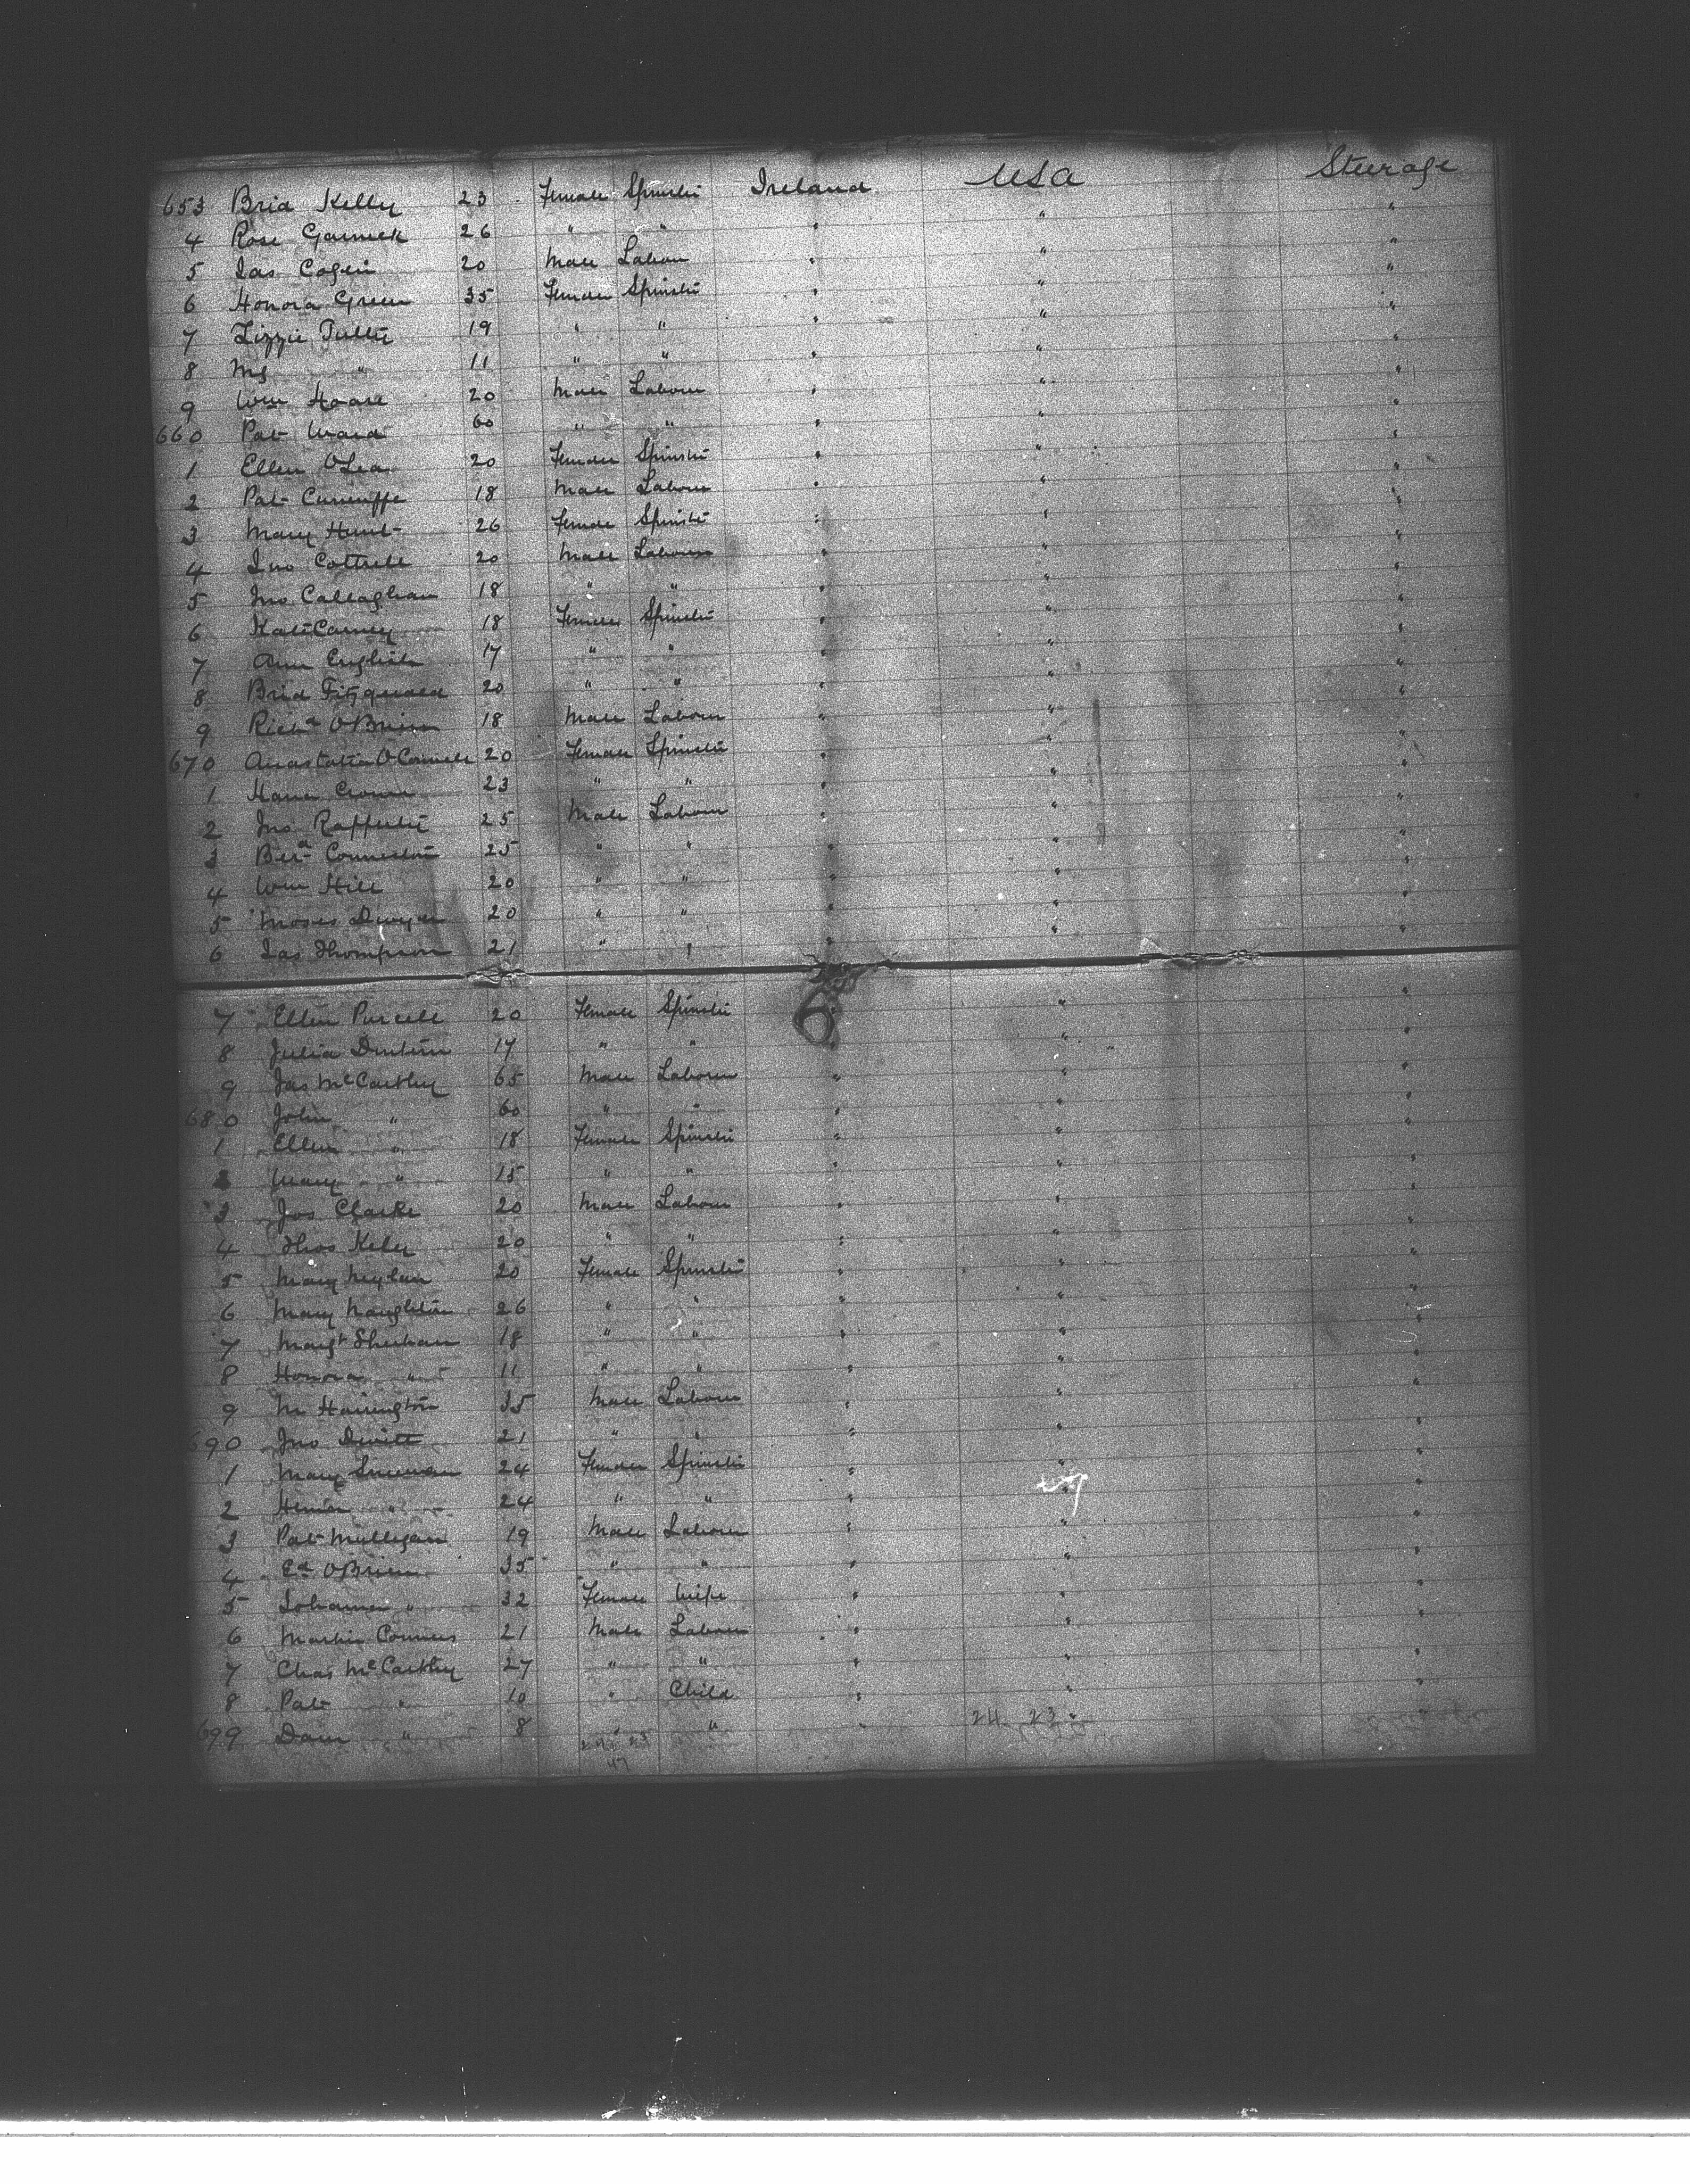 653 Brid Kelly 23 Female Spinster Ireland USA Steerage
4 Rose 26 " " " " "
5 Jas 20 Male Labour " " "
6 Honora Green 35 Female Spinster " " "
7 Lizzie 19 " " " " "
8 Mg " 11 " " " " "
9 Wm Hoare 20 Male Labour " " "
660 Pat Ward 60 " " " " "
1 Ellen O'Lea 20 Female Spinster " " "
2 Pat Cunniffe 18 Male Labour " " "
3 Mary Hunt 26 Female Spinster " " "
4 Jno Cottrell 20 Male Labour " " "
5 Jno Callaghan 18 " " " " "
6 Kate Carney 18 Female Spinster " " "
7 Ann English 17 " " " " "
8 Brid Fitzgerald 20 " " " " "
9 Richd O'Brien 18 Male Labour " " "
670 Anastatia O'Connell 20 Female Spinster " " "
1 Hana 23 " " " " "
2 Jno Rafferty 25 Male Labour " " "
3 25 " " " " "
4 Wm Hill 20 " " " " "
5 Moses Dwyer 20 " " " " "
6 Jas Thompson 21 " " " " "
7 Ellen Purcell 20 Female Spinster " " "
8 Julia 17 " " " " "
9 Jas McCarthy 65 Male Labour " " "
680 John " 60 " " " " "
1 Ellen " 18 Female Spinster " " "
2 Mary " 15 " " " " "
3 Jos Clarke 20 Male Labour " " "
4 Thos Kely 20 " " " " "
5 Mary Meylan 20 Female Spinster " " "
6 Mary Naughton 26 " " " " "
7 Margt Sheehan 18 " " " " "
8 Honora " 11 " " " " "
9 M Harrington 35 Male Labour " " "
690 Jno Devitt 21 " " " " "
1 Mary 24 Female Spinster " " "
2 " 24 " " " " "
3 Pat Mulligan 19 Male Labour " " "
4 Ed O'Brien 35 " " " " "
5 Johanna " 32 Female Wife " " "
6 Martin Conners 21 Male Labour " " "
7 Chas McCarthy 27 " " " " "
8 Pat " 10 " Child " " "
699 Dan " 8 " " " 24 23 "
47